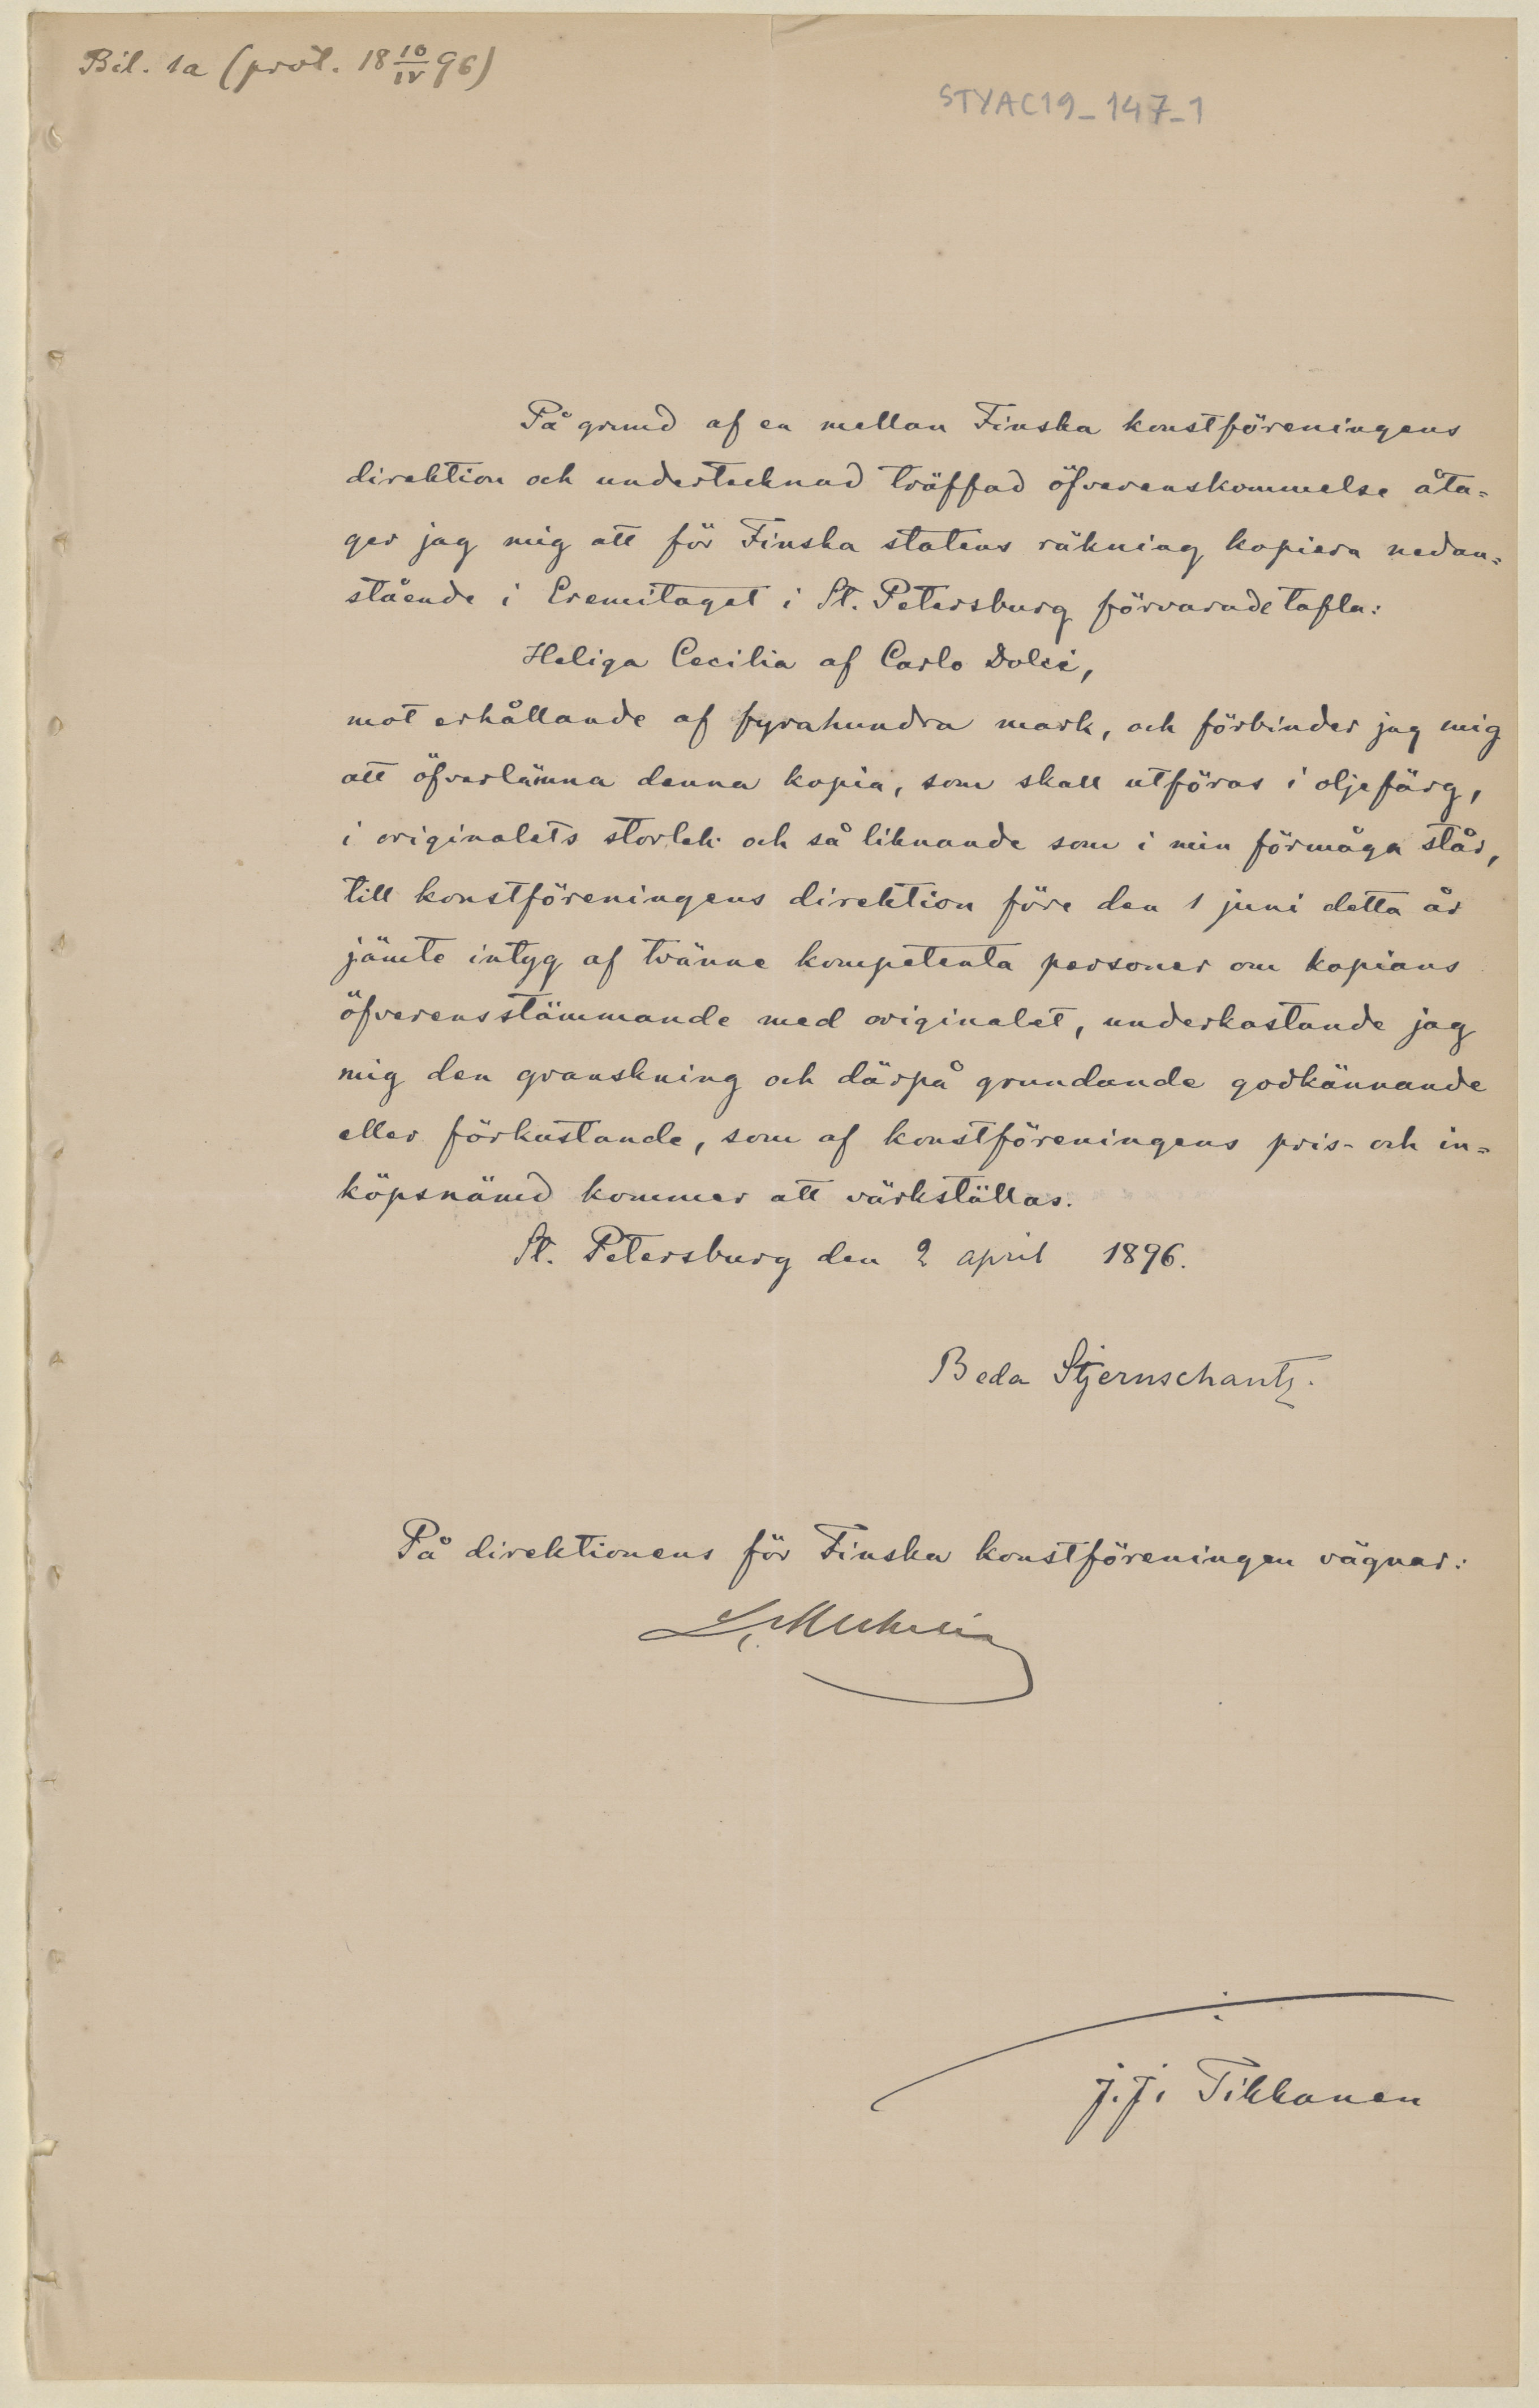 Bil. 1a (prot. 18 10/IV 96)
STYAC19_147_1
På grund af en mellan Finska konstföreningens
direktion och undertecknad träffad öfverenskommelse åta=
ger jag mig att för Finska statens räkning kopiera nedan=
stående i Eremitaget i St. Petersburg förvarade tafla:
Heliga Cecilia af Carlo Dolci,
mot erhållande af fyrahundra mark, och förbinder jag mig
att öfverlämna denna kopia, som skall utföras i oljefärg,
i originalets storlek och så liknande som i min förmåga står,
till konstföreningens direktion före den 1 juni detta år
jämte intyg af tvänne kompetenta personer om kopians
öfverensstämmande med originalet, underkastande jag
mig den granskning och därpå grundande godkännande
eller förkastande, som af konstföreningens pris- och in=
köpsnämd kommer att värkställas.
St. Petersburg den 2 april 1896.
Beda Stjernschantz.
På direktionens för Finska konstföreningen vägnar:
L. Mechelin
J. J. Tikkanen